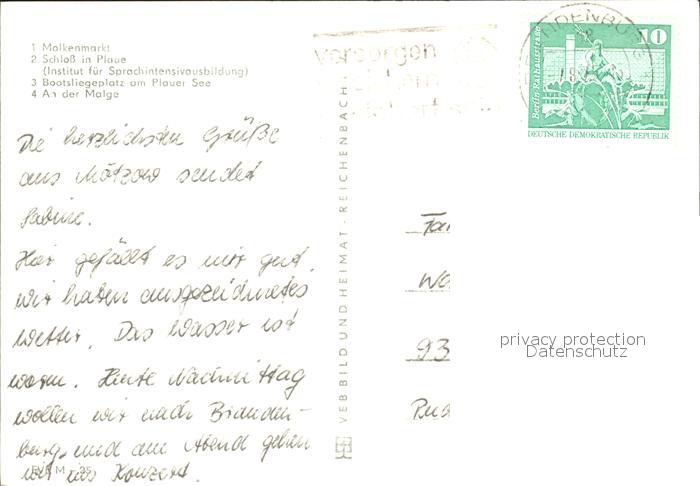 1 Molkenmarkt
2 Schloß in Plaue
(Institut für Sprachintensivausbildung)
3 Bootsliegeplatz am Plauer See
4 An der Malge
Die herzlichsten Grüße
aus Mötzow sendet
Sabine.
Hier gefällt es mir gut,
wir haben ausgezeichnetes
Wetter. Das Wasser ist
warm. Heute Nachmittag
wollen wir nach Branden-
burg, und am Abend gehen
wir ins Konzert.
VEB BILD UND HEIMAT · REICHENBACH
versorgen
BRANDENBURG
10
Berlin Rathausstraße
DEUTSCHE DEMOKRATISCHE REPUBLIK
93
privacy protection
Datenschutz